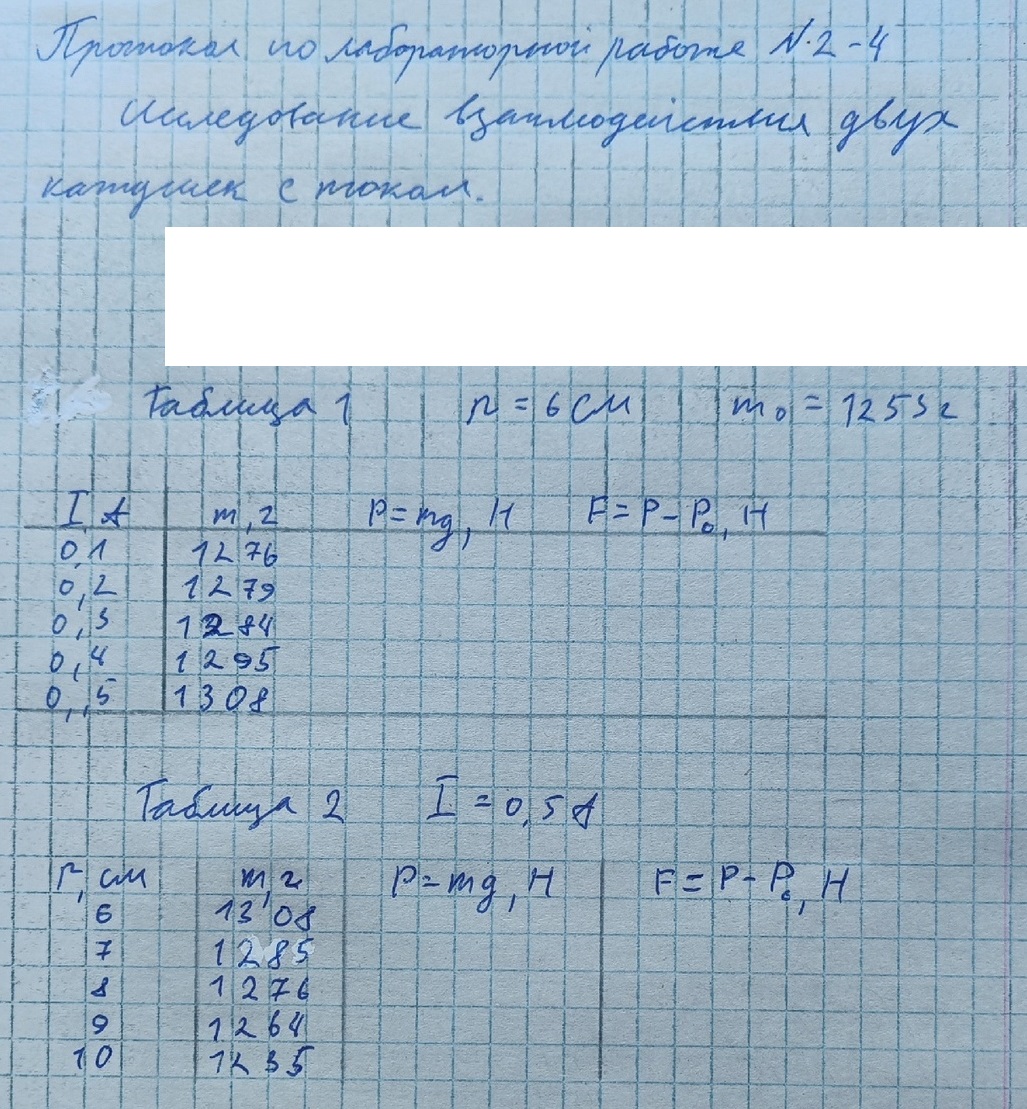 Протокол по лабораторной работе №2-4
Иследование взаимодействия двух
катушек с током.
Таблица 1 r = 6 см m₀ = 1253г
I, А m, г P = mg, Н F = P - P₀, Н
0,1 1276
0,2 1279
0,3 1284
0,4 1295
0,5 1308
Таблица 2 I = 0,5 А
r, см m, г P = mg, Н F = P - P₀, Н
6 1308
7 1285
8 1276
9 1264
10